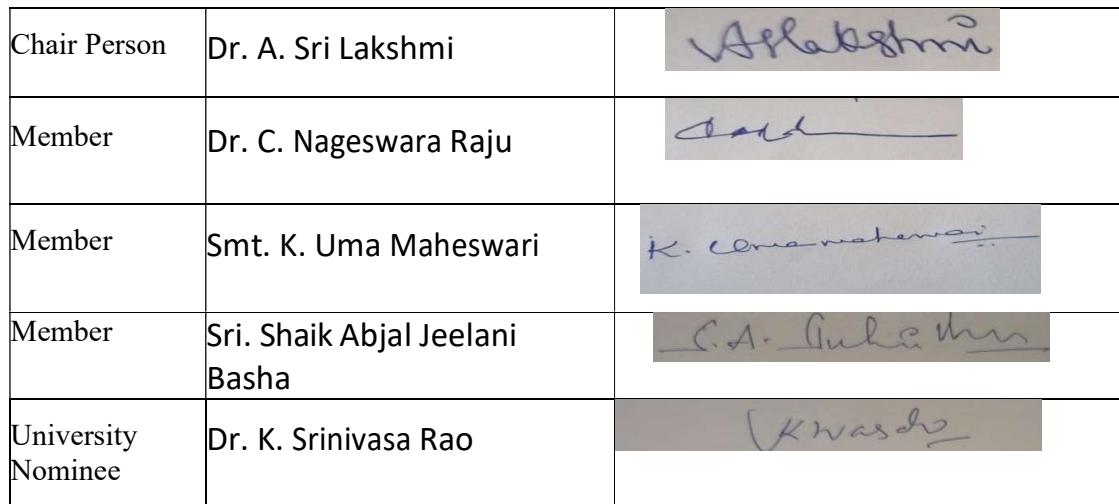 Chair Person
Dr. A. Sri Lakshmi
ASLakshmi
Member
Dr. C. Nageswara Raju
Member
Smt. K. Uma Maheswari
K. Umamaheswari
Member
Sri. Shaik Abjal Jeelani
Basha
University
Nominee
Dr. K. Srinivasa Rao